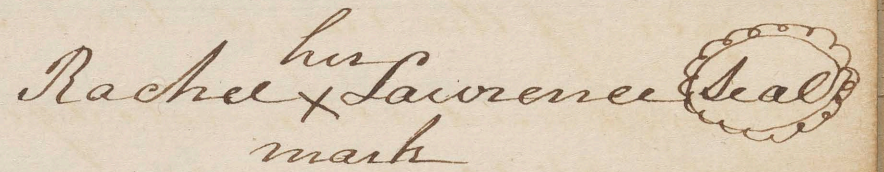 her
Rachel x Lawrence Seal
mark